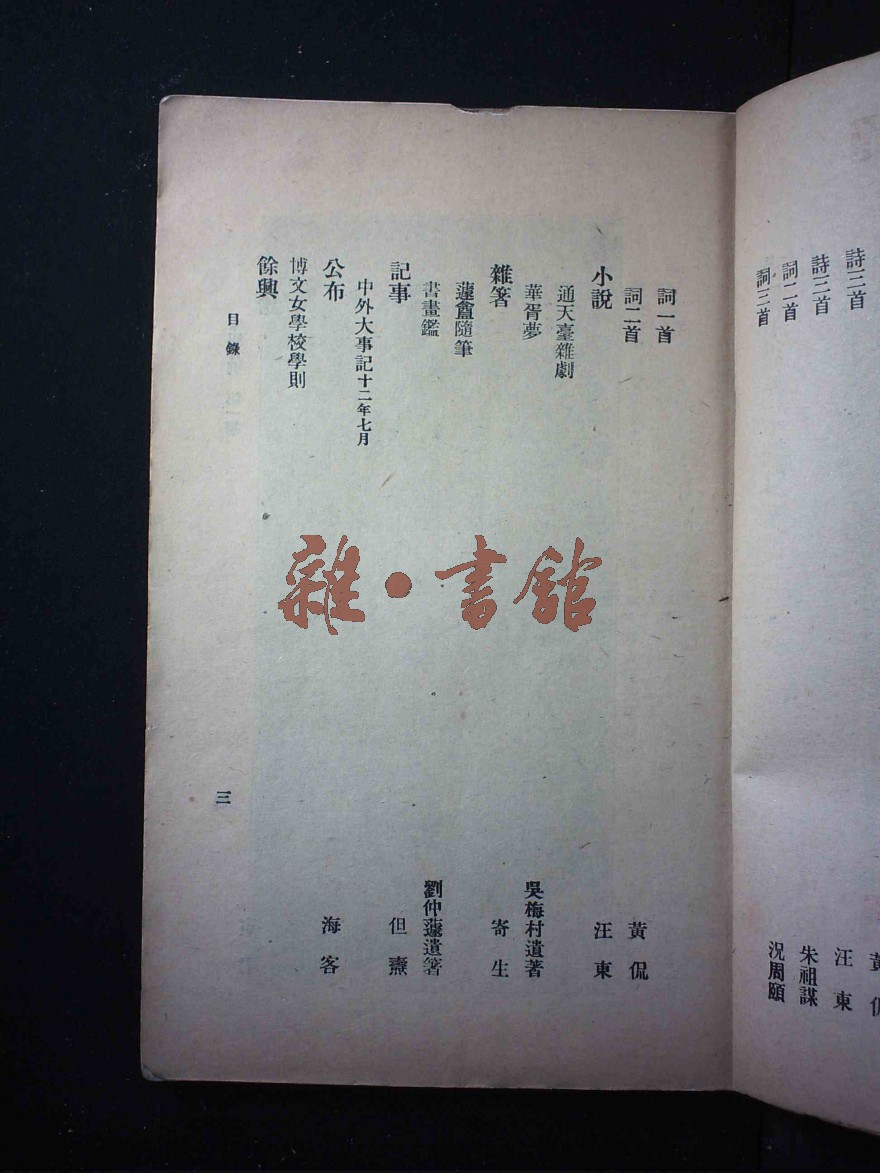 詩三首 黃侃
詩三首 汪東
詞二首 朱祖謀
詞三首 況周頤
詞一首 黃侃
詞二首 汪東
小說
通天臺雜劇 吳梅村遺著
華胥夢 寄生
雜箸
蘧盦隨筆 劉仲蘧遺箸
書畫鑑 但燾
記事
中外大事記十二年七月 海客
公布
博文女學校學則
餘興
目錄 三
雜·書館